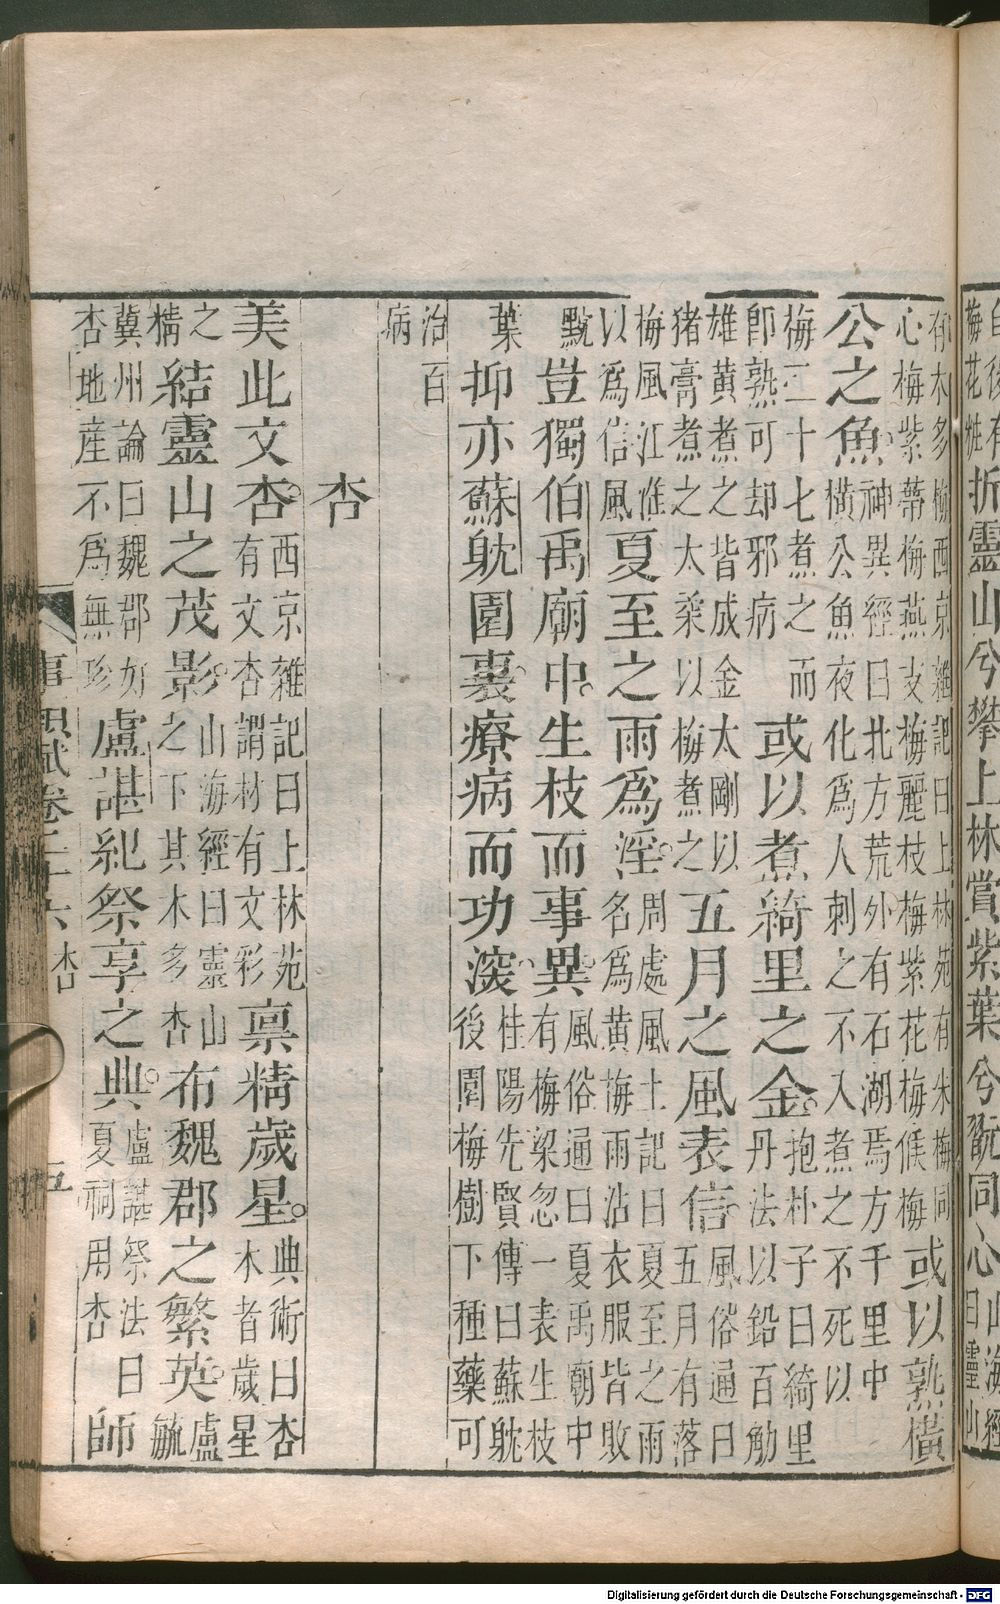 梅花妝折靈山兮攀上林賞紫葉兮翫同心山海經曰靈山
有木多梅西京雜記曰上林苑有朱梅同心梅紫蔕梅燕支梅麗枝梅紫花梅候梅或以熟橫
公之魚神異經曰北方荒外有石湖焉方千里中橫公魚夜化爲人刺之不入煮之不死以
梅二十七煮之而即熟可却邪病或以煮綺里之金抱朴子曰綺里丹法以鉛百觔
雄黃煮之皆成金太剛以猪膏煮之太柔以梅煮之五月之風表信風俗通曰五月有落
梅風江淮以爲信風夏至之雨爲淫周處風土記曰夏至之雨名爲黃梅雨沾衣服皆敗
黦豈獨伯禹廟中生枝而事異風俗通曰夏禹廟中有梅梁忽一表生枝
葉抑亦蘇躭園裏療病而功深桂陽先賢傳曰蘇躭後園梅樹下種藥可
治百病
杏
美此文杏西京雜記曰上林苑有文杏謂材有文彩禀精歲星典術曰杏木者歲星
之精結靈山之茂影山海經曰靈山之下其木多杏布魏郡之繁英盧毓
冀州論曰魏郡如杏地産不爲無珍盧諶紀祭享之典盧諶祭法曰夏祠用杏師
事類賦卷二十六 杏 五
Digitalisierung gefördert durch die Deutsche Forschungsgemeinschaft - DFG